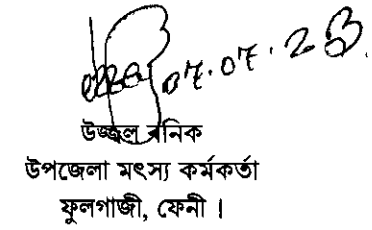 07.07.23
উজ্জ্বল বনিক
উপজেলা মৎস্য কর্মকর্তা
ফুলগাজী, ফেনী ।